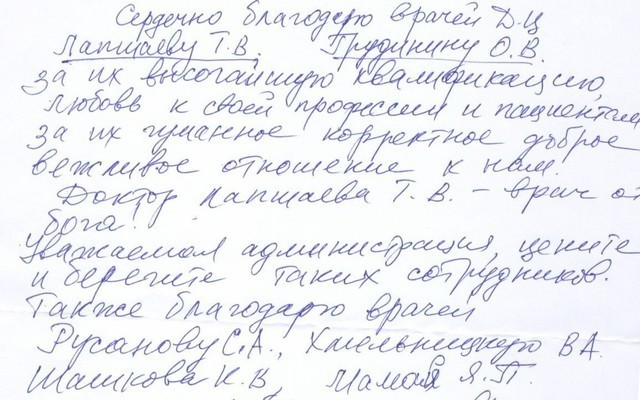 Сердечно благодарю врачей Д.Ц
Лапшаеву Т.В. Грудинину О.В.
за их высочайшую квалификацию,
любовь к своей профессии и пациентам,
за их гуманное корректное доброе
вежливое отношение к нам.
Доктор Лапшаева Т.В. – врач от
бога!
Уважаемая администрация, цените
и берегите таких сотрудников.
Также благодарю врачей
Русанову С.А., Хмельницкую В.А.
Шашкова К.В, Мамай Я.П.